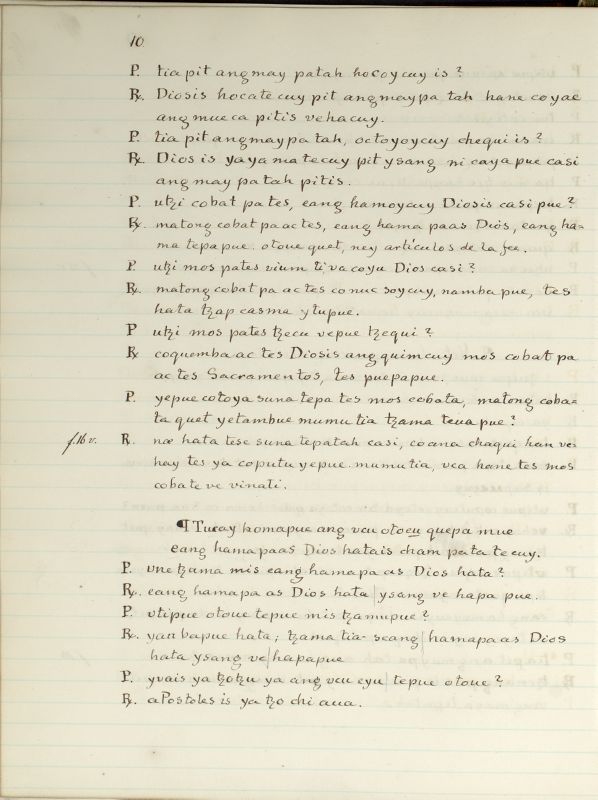 10.
P. tia pit angmay patah hocoycuy is?
R. Diosis hocate cuy pit angmaypa tah hane coyae
angmueca pitis vehacuy.
P. tia pit angmaypa tah, octoyoycuy chequi is?
R. Dios is yayamatecuy pit ysang ni caya pue casi
angmay patah pitis.
P. utzi cobat pa tes, eang hamoycuy Diosis casi pue?
R. matong cobat pa actes, eang hama paas Dios, eang ha=
ma tepa pue. otoue quet, ney artículos de la fee.
P. utzi mos pates vium ti, va coyu Dios casi?
R. matong cobat pa actes conuc soycuy, namba pue, tes
hata tzap casma ytupue.
P utzi mos pates tzecu vepue tzequi?
R coquemba ac tes Diosis ang quimcuy mos cobat pa
ac tes Sacramentos, tes puepapue.
P. yepue cotoya suna tepa tes mos cobata, matong coba=
ta quet yetambue mumu tia tzama teua pue?
f. 16 v. R. næ hata tese suna tepatah casi, coana chaqui han ve=
hay tes ya coputu yepue mumu tia, vca hane tes mos
cobate ve vinati.
¶ Tucay komapue ang vcu otoeu quepa mue
eang hamapaas Dios hatais cham pata te cuy.
P. vne tzama mis eang hamapa as Dios hata?
R. eang hamapa as Dios hata | ysang ve hapa pue.
P. vtipue otoue tepue mis tzamupue?
R. yan bapue hata; tzama tia- seang | hamapa as Dios
hata ysang ve | hapapue
P. yvais ya tzotzu ya ang vcu eyu | tepue otoue?
R. aPostoles is ya tzo chi aua.